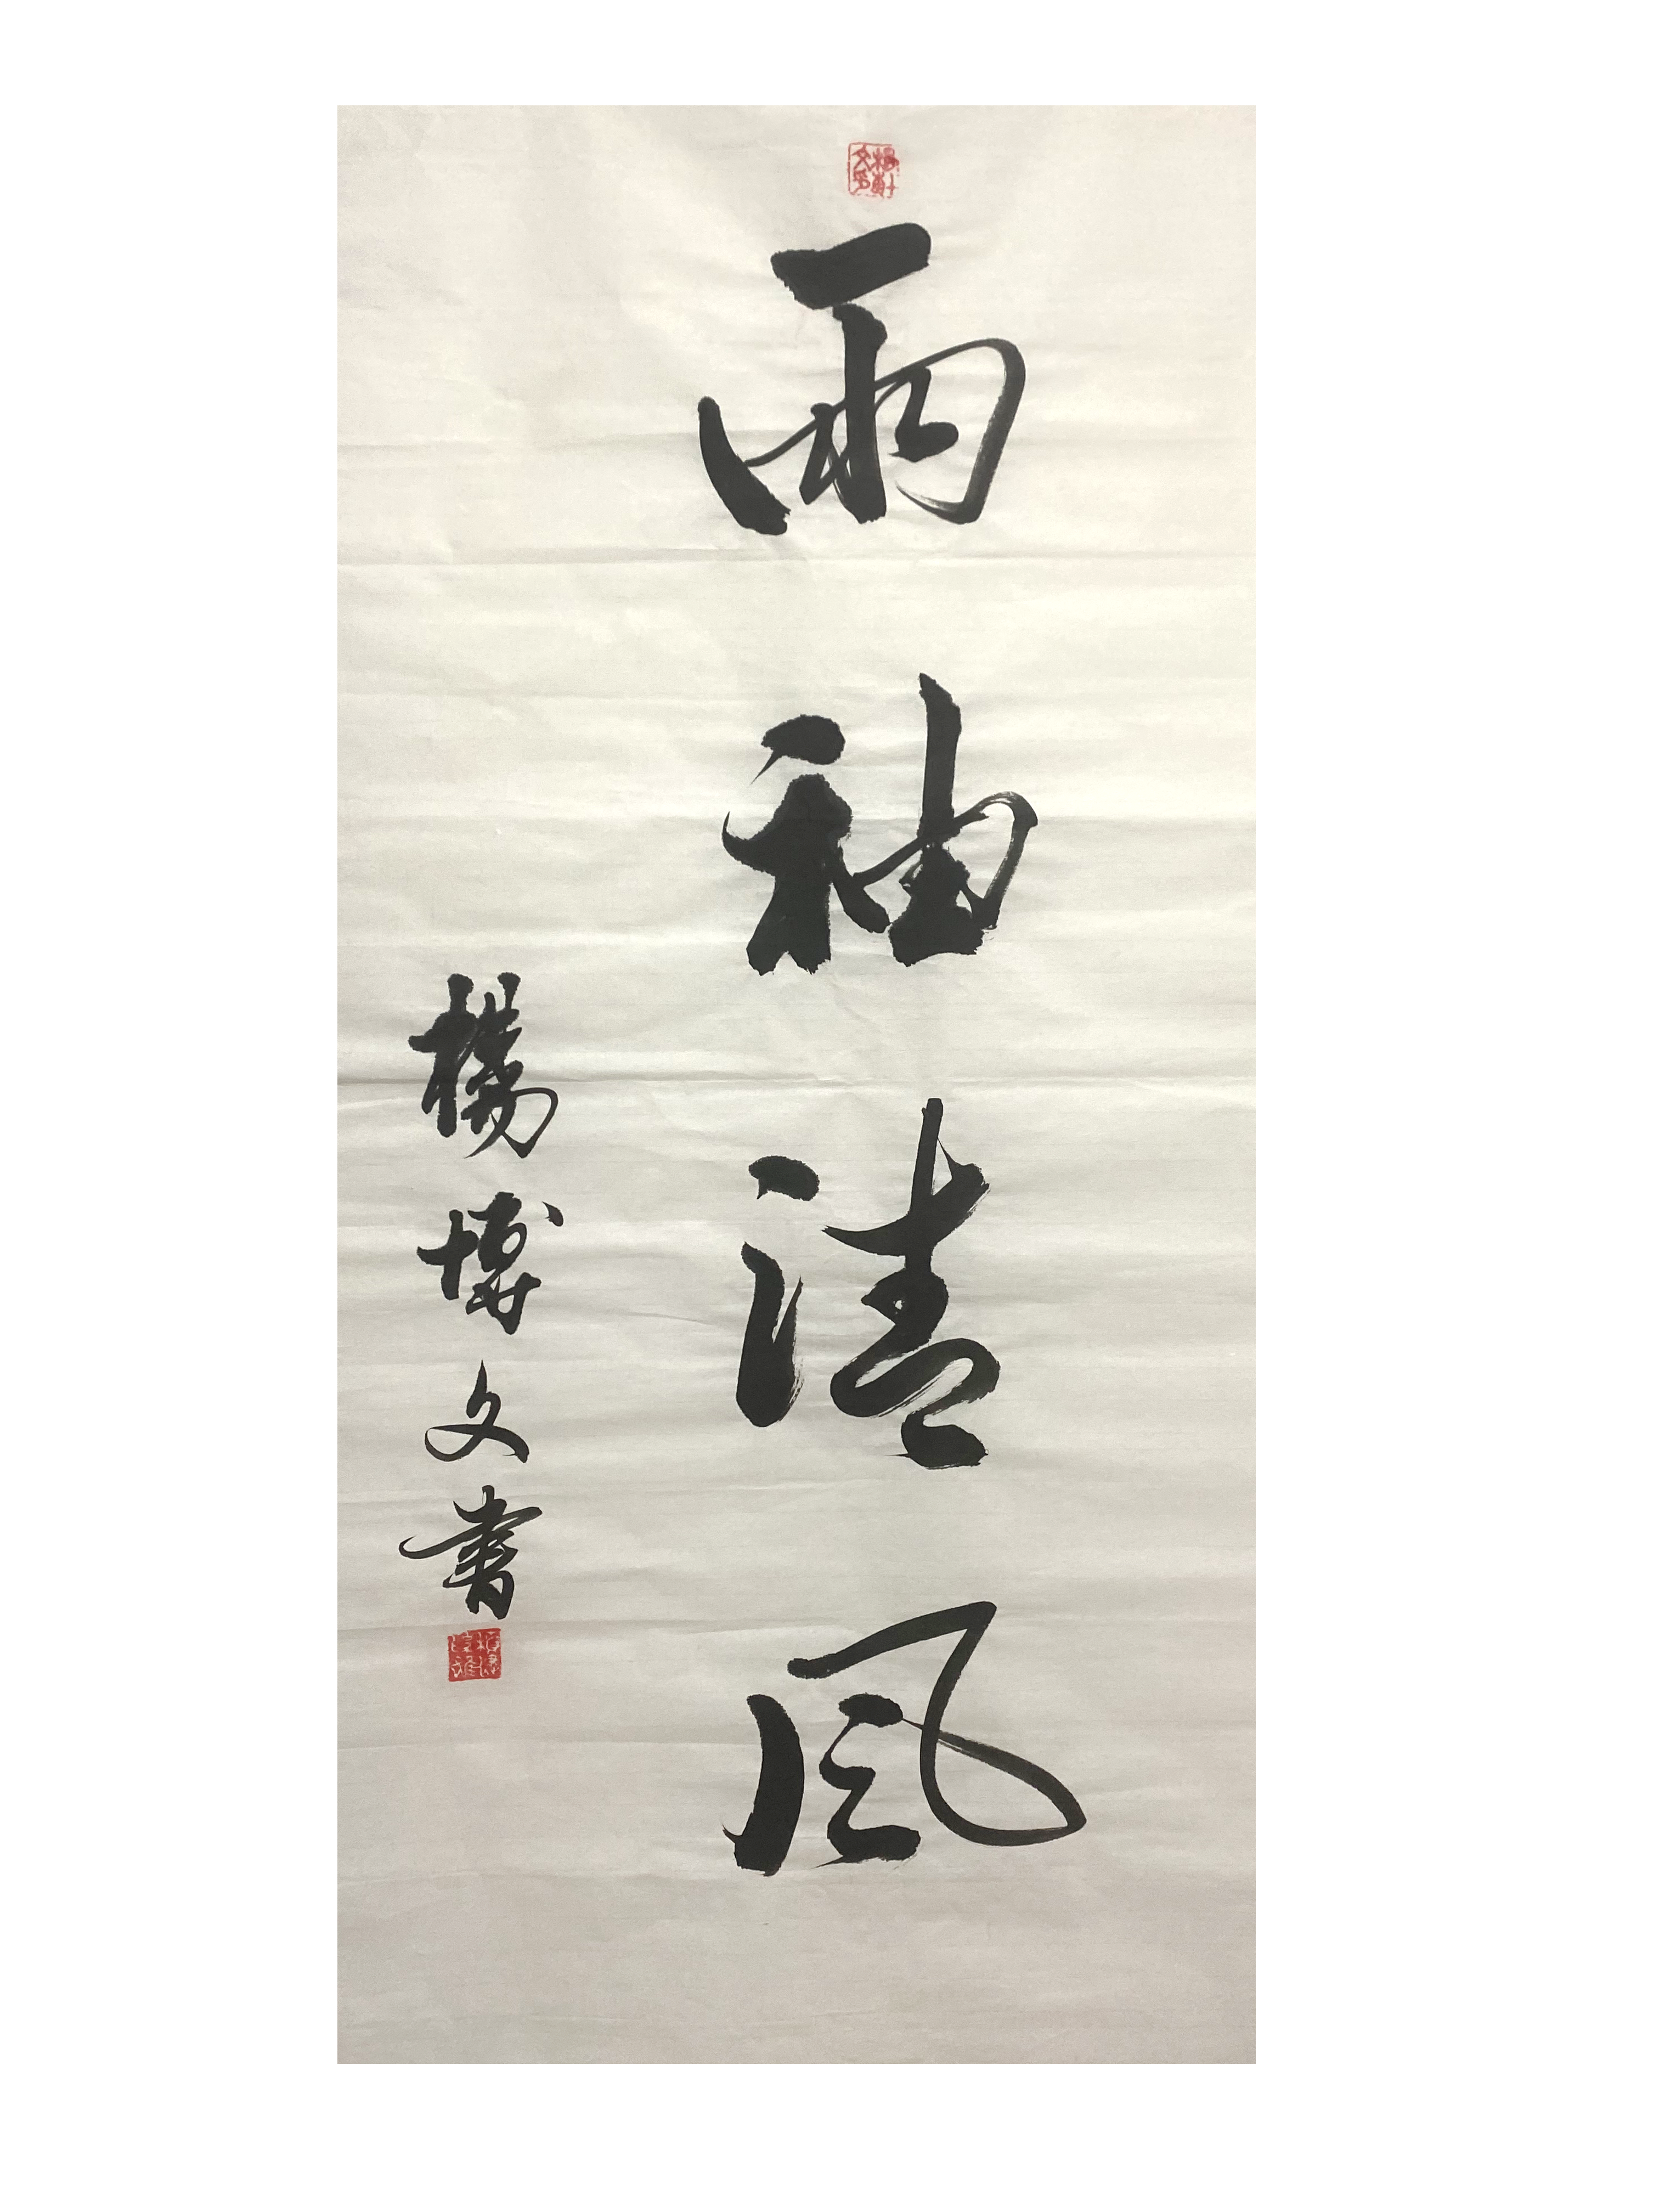 兩袖清風
楊博文書